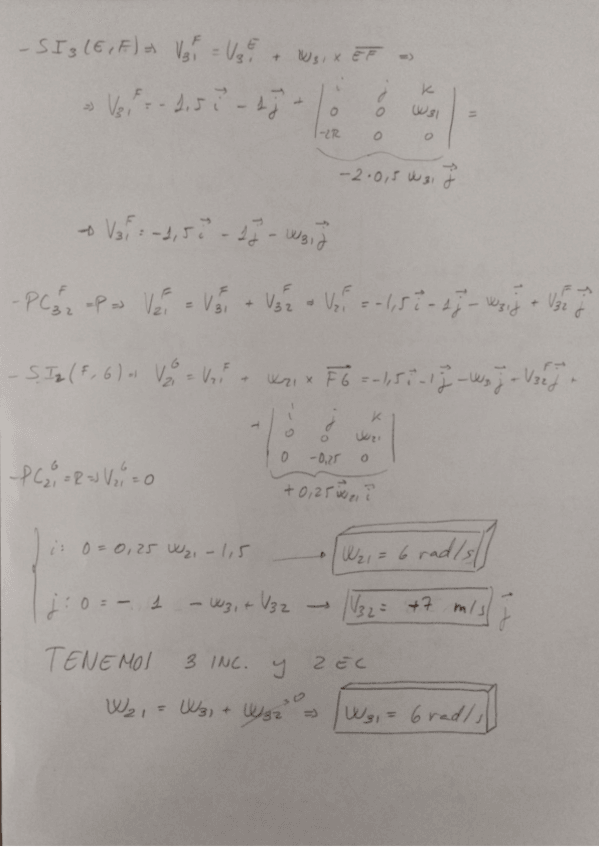 - SI₃(E,F) ⇒ V₃₁^F = V₃₁^E + ω₃₁ × EF ⇒
⇒ V₃₁^F = -1,5 i⃗ - 1 j⃗ + | i j k
0 0 ω₃₁ | =
-2R 0 0 |
-2·0,5 ω₃₁ j⃗
→ V₃₁^F = -1,5 i⃗ - 1 j⃗ - ω₃₁ j⃗
- PC₃₂^F = P ⇒ V₂₁^F = V₃₁^F + V₃₂^F ⇒ V₂₁^F = -1,5 i⃗ - 1 j⃗ - ω₃₁ j⃗ + V₃₂^F j⃗
- SI₂(F,G) ⇒ V₂₁^G = V₂₁^F + ω₂₁ × FG = -1,5 i⃗ - 1 j⃗ - ω₃₁ j⃗ - V₃₂^F j⃗ +
+ | i j k
0 0 ω₂₁ |
0 -0,25 0 |
+0,25 ω₂₁ i⃗
- PC₂₁^G = R ⇒ V₂₁^G = 0
i: 0 = 0,25 ω₂₁ - 1,5 → ω₂₁ = 6 rad/s
j: 0 = - 1 - ω₃₁ + V₃₂ → V₃₂ = +7 m/s j⃗
TENEMOS 3 INC. y 2 EC
ω₂₁ = ω₃₁ + ω₃₂ 0 ⇒ ω₃₁ = 6 rad/s